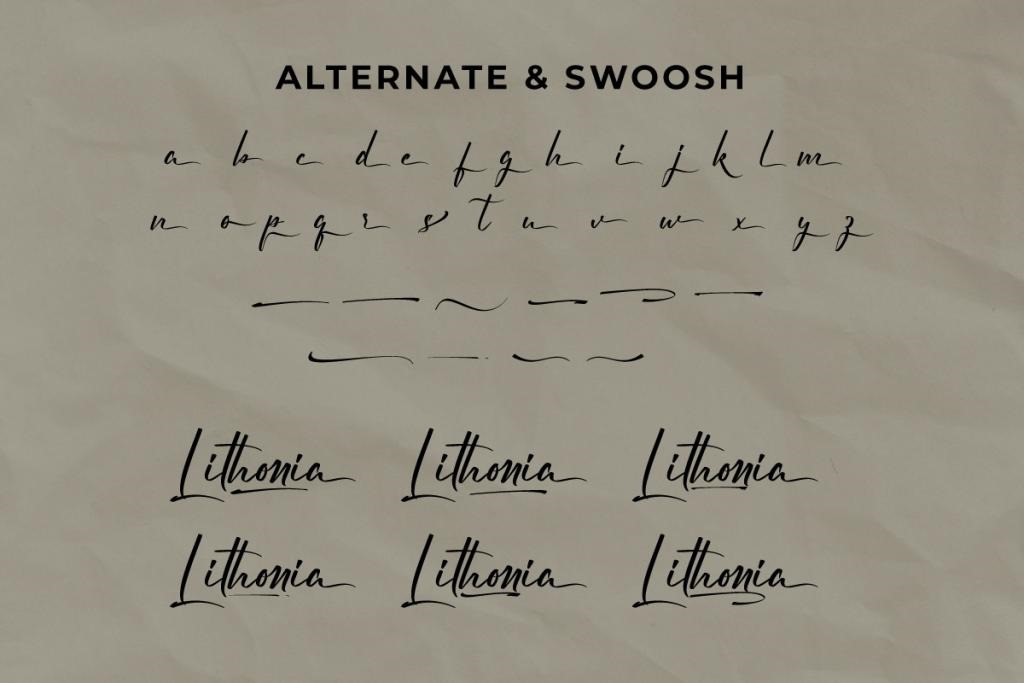 ALTERNATE & SWOOSH
a b c d e f g h i j k l m
n o p q r s t u v w x y z
Lithonia Lithonia Lithonia
Lithonia Lithonia Lithonia